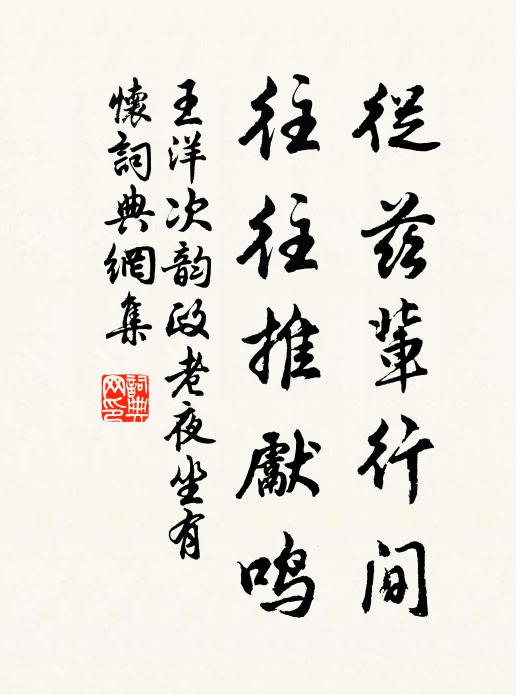 從茲輩行間
往往推獻鳴
王洋次韵政老夜坐有
懷詞典網集
詞典
网印